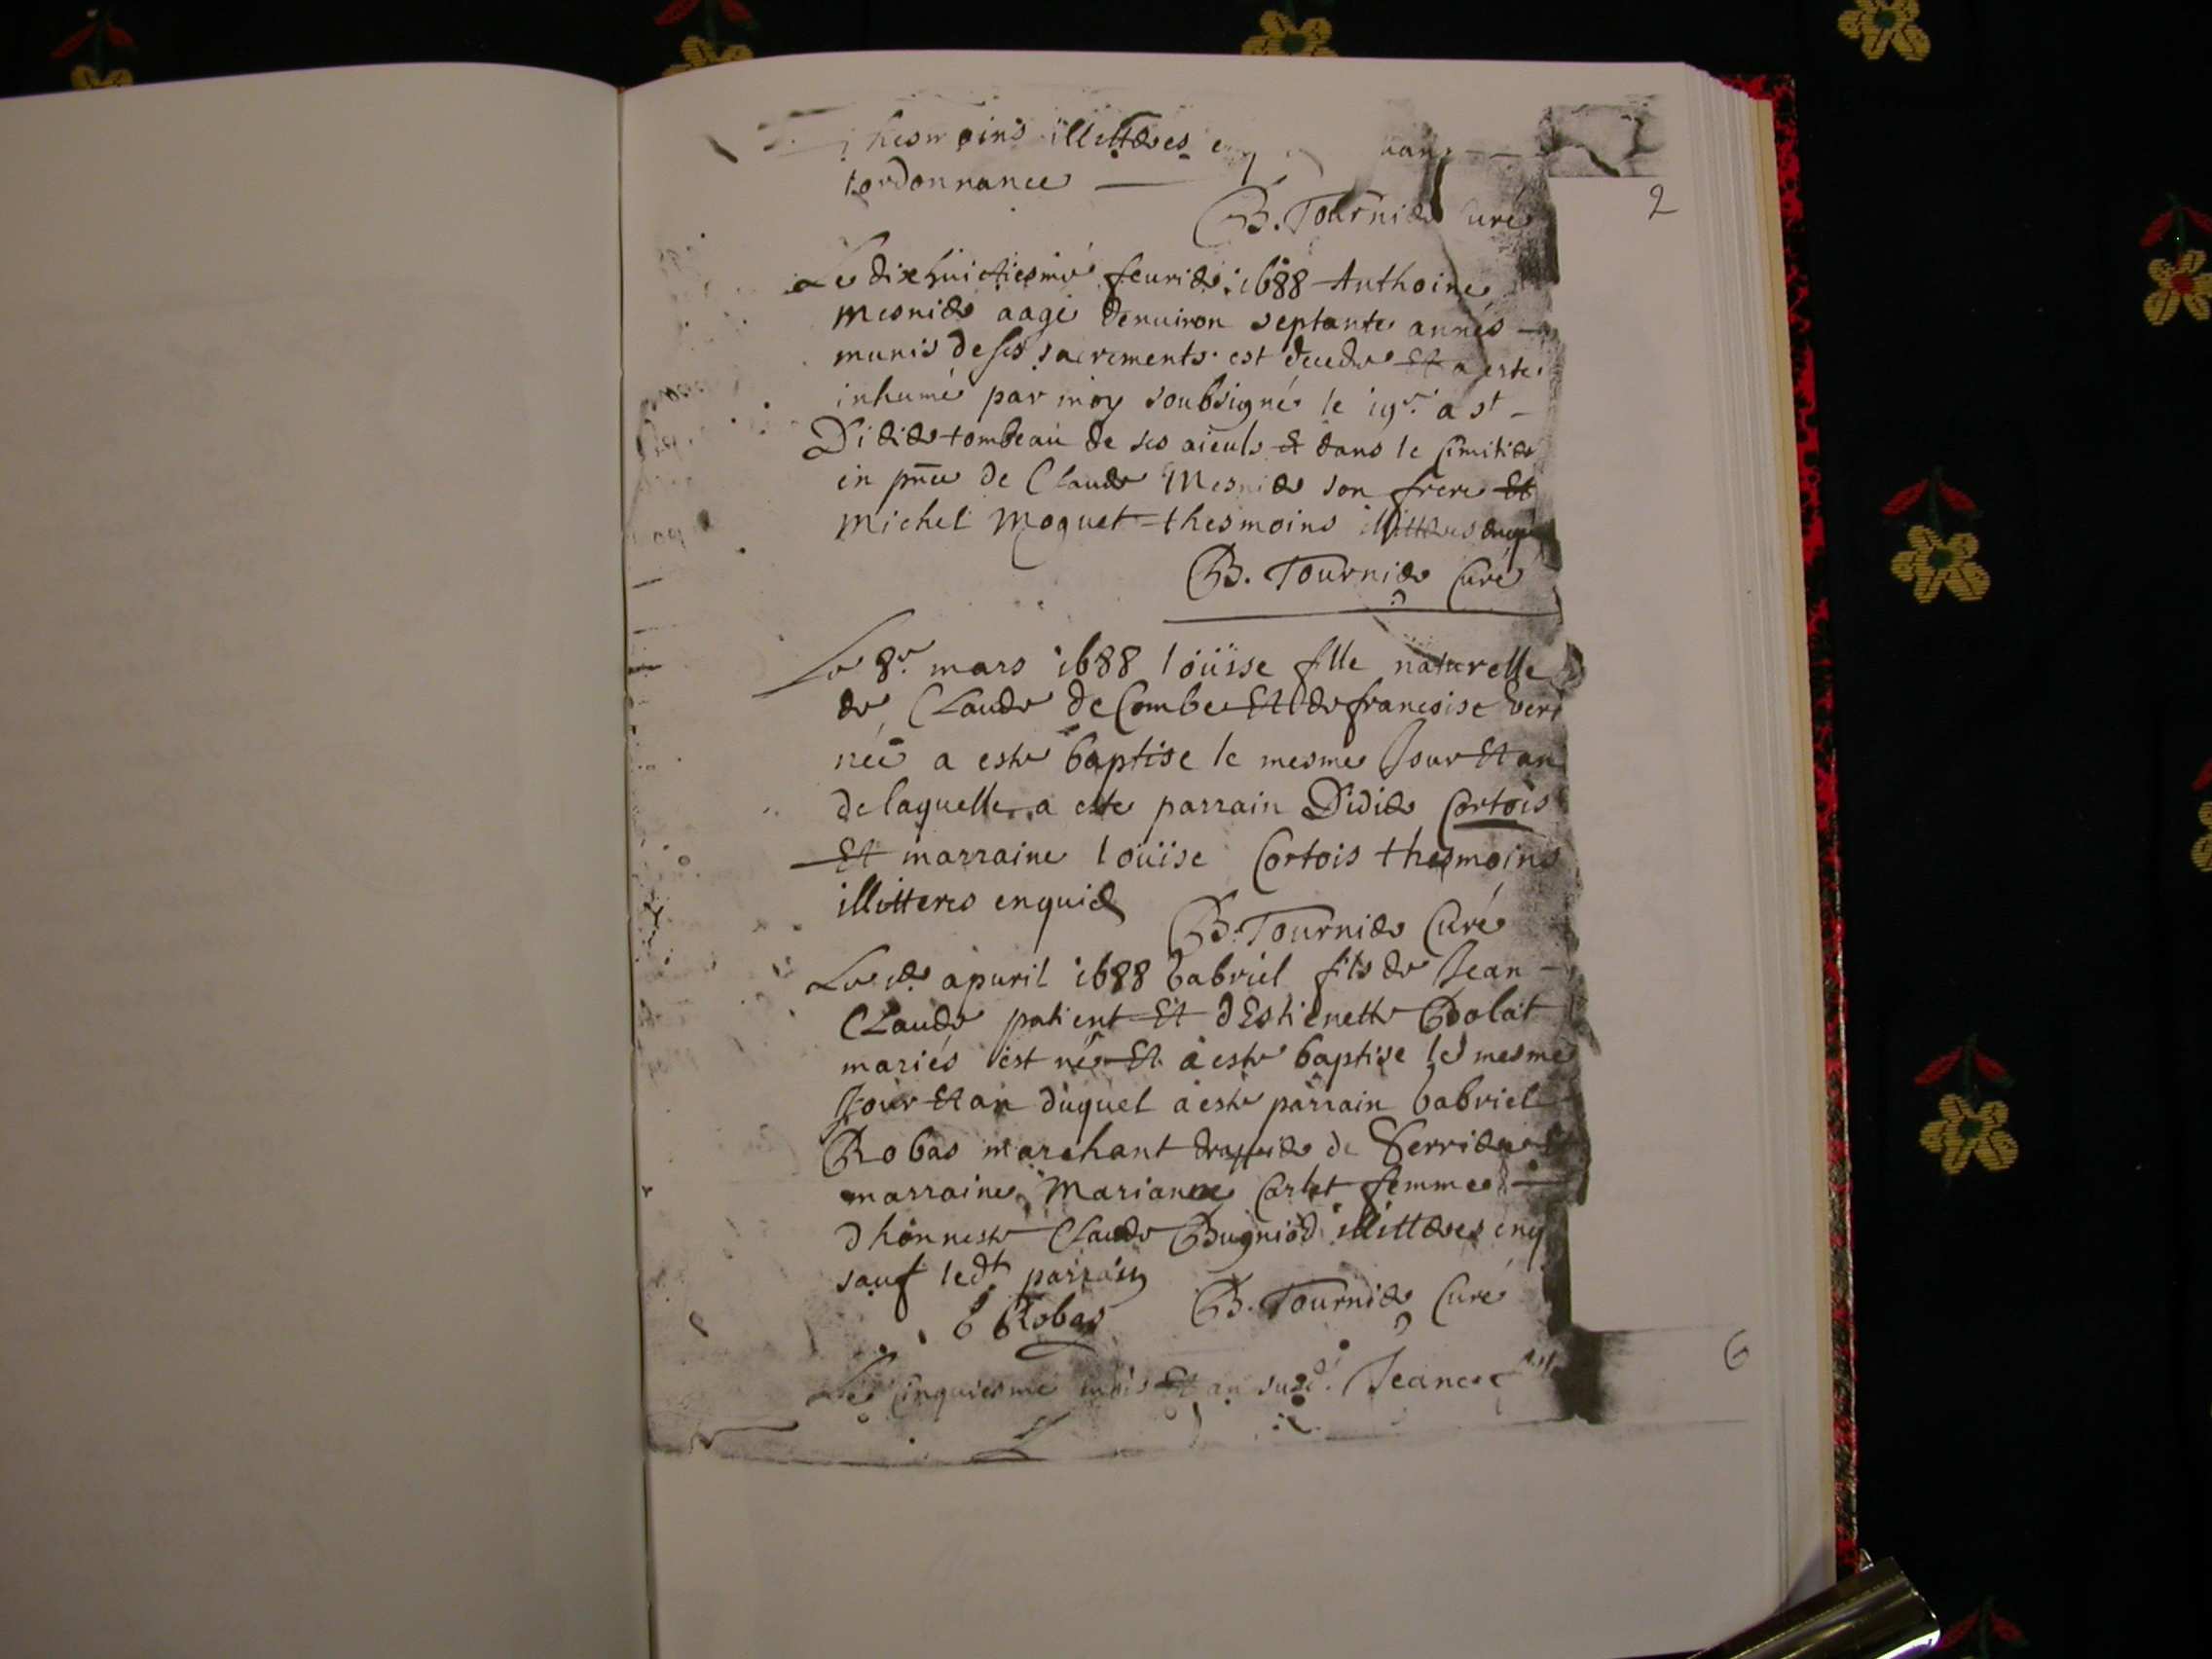 thesmoins illitteres
l'ordonnance
B. Tournier Curé
2
Le dixhuictiesme feurier 1688 Anthoine
Mesnier aagé denuiron septante années
munis de ses sacrements est decede Et a este
inhumé par moy soubsigné le 19e a st
Didier tombeau de ses aieuls et dans le Cimitier
en pnce de Claude Mesnier son frere Et
Michel Moquet thesmoins illitteres enq
B. Tournier Curé
Le 8e mars 1688 loüisse fille naturelle
de Claude de Combe Et de francoise
née a este baptise le mesme Jour Et an
de laquelle a este parrain Didier Cortois
Et marraine loüise Cortois thesmoins
illitteres enquie
B. Tournier Curé
Le apuril 1688 Gabriel fils de Jean
Claude patient Et d'Estienette Dolat
mariés est né Et a este baptise le mesme
Jour Et an duquel a este parrain Gabriel
Robas marchant drappier de Verrier Et
marraine Marianne Carlet femme
d'honneste Claude Bugniod illitteres enq
sauf ledt parrain
G Robas
B. Tournier Curé
Le Cinquiesme mois Et an susd. Jeane
6